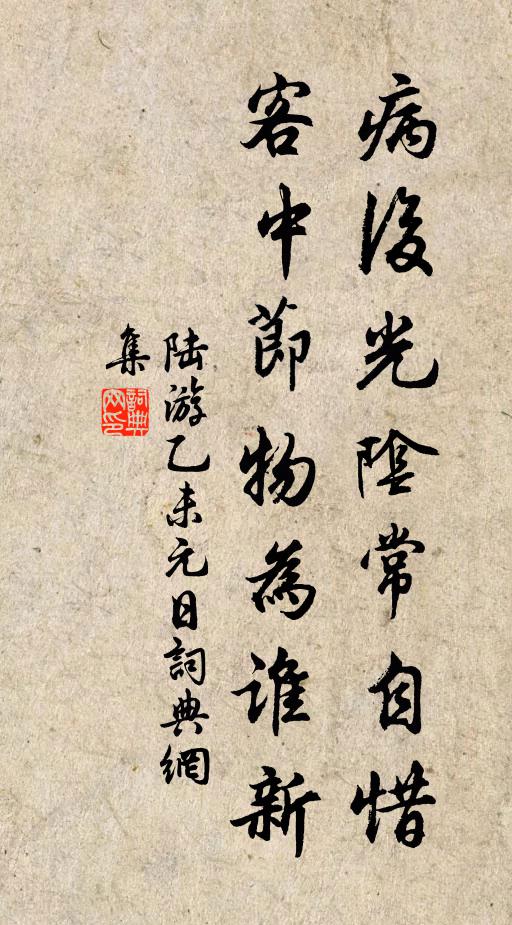 病後光陰常自惜
客中節物為誰新
陸游乙未元日詞典網
集
詞典
网印